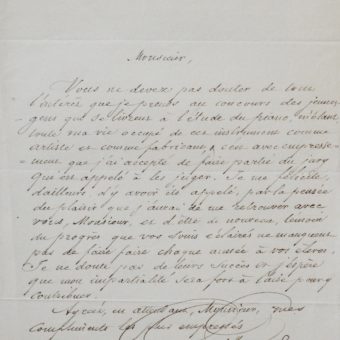 Monsieur,
Vous ne devez pas douter de tout
l'intérêt que je prends au concours des jeunes
gens qui se livrent à l'étude du piano, m'étant
toute ma vie occupé de cet instrument comme
artiste et comme fabricant, c'est avec empresse-
ment que j'ai accepté de faire partie du jury
qui est appelé à les juger. Je me félicite,
d'ailleurs d'y avoir été appelé, par la pensée
du plaisir que j'aurai de me retrouver avec
vous, Monsieur, et d'être de nouveau, témoin
du progrès que vos soins éclairés ne manquent
pas de faire faire chaque année à vos élèves.
Je ne doute pas de leurs succès et j'espère
que mon impartialité sera fort à l'aise pour y
contribuer.
Agréez, en attendant, Monsieur, mes
compliments les plus empressés